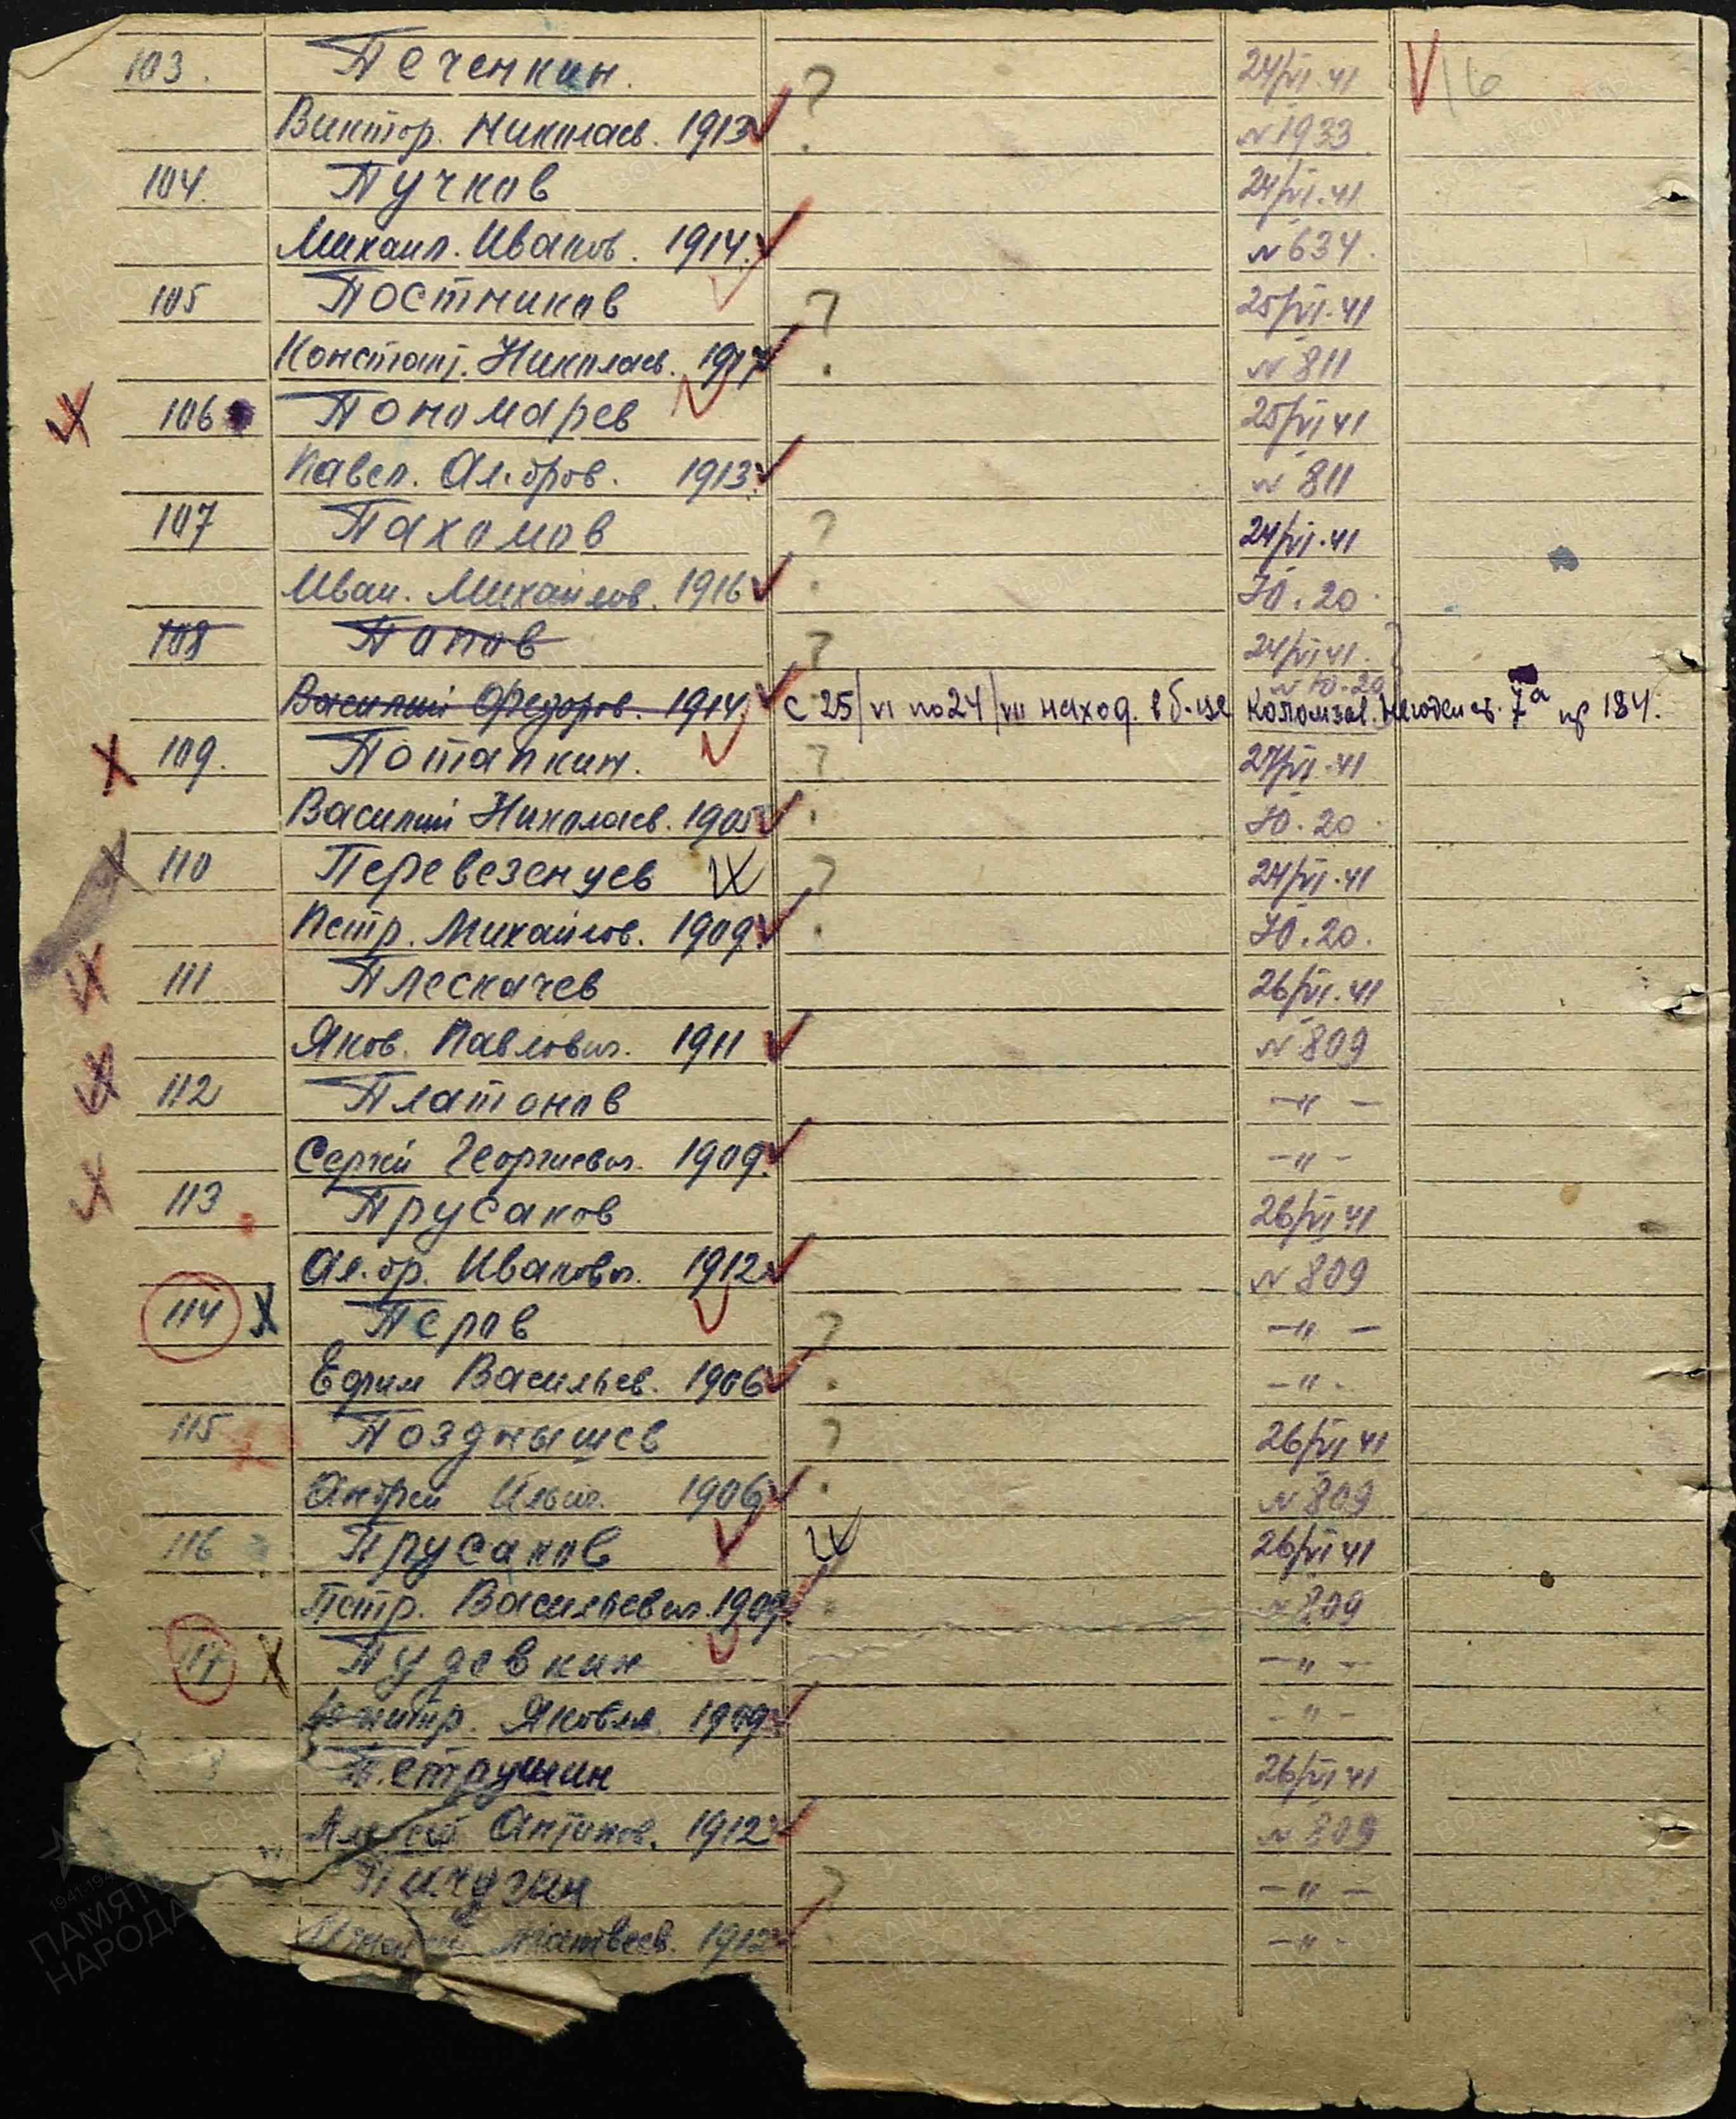 103. Печенкин. ? 24/VI.41 16
Виктор. Николаев. 1913 N 1933
104. Пучков 24/VI.41
Михаил. Иванов. 1914. N 634.
105 Постников ? 25/VI.41
Констант. Николаев. 1917 N 811
106 Пономарев 25/VI 41
Павел. Ал.дров. 1913. N 811
107 Пахомов ? 24/VI.41
Иван. Михайлов. 1916 Ю.20.
108 Попов ? 24/VI 41.
N Ю-20
Василий Федоров. 1914 с 25/VI по 24/VII наход. в б-це Коломзав. 7а пр 184.
109. Потапкин. ? 24/VI.41
Василий Николаев. 1905 Ю.20.
110 Перевезенцев ? 24/VI.41
Петр. Михайлов. 1909. Ю.20.
111 Плескачев 26/VI.41
Яков. Павлович. 1911 N 809
112 Платонов -"-
Сергей Георгиевич. 1909. -"-
113 Прусаков 26/VI 41
Ал.др. Иванович. 1912 N 809
114 Перов ? -"-
Ефим Васильев. 1906 -"-
115 Позднышев ? 26/VI 41
Андрей Ильич. 1906 N 809
116 Прусаков 26/VI 41
Петр. Васильевич. 1909. N 809
117 Пудовкин -"-
Яковл. 1909 -"-
Петрушин 26/VI 41
Алексей Антонов. 1912 N 809
Пичугин ? -"-
Матвеев. 1912 -"-
ПАМЯТЬ
НАРОДА